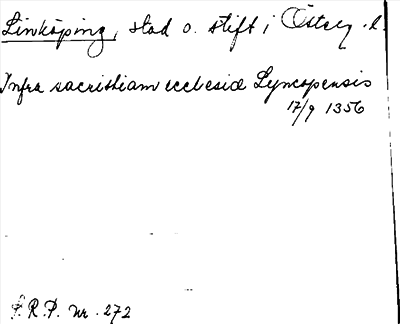 Linköping, stad o. stift i Österg. l.
Infra sacristiam ecclesiæ Lyncopensis
17/9 1356
S.R.P. nr. 272